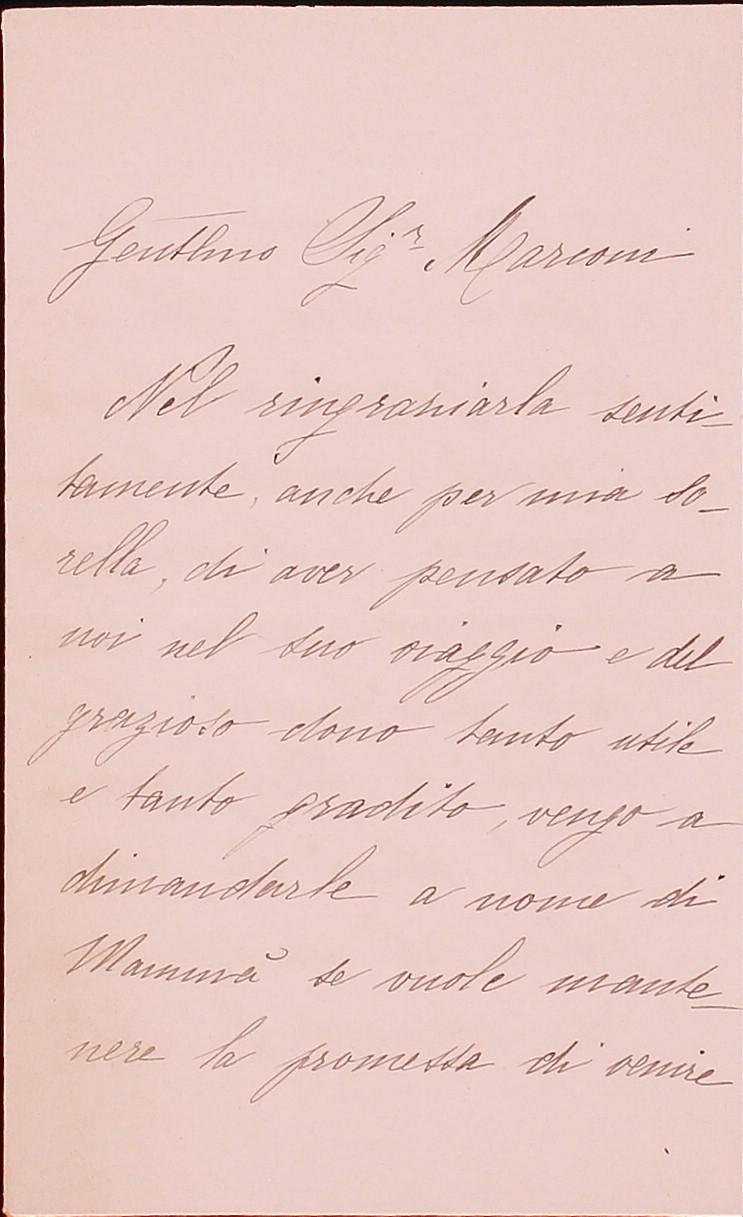 Gentllmo Sigr Marconi
Nel ringraziarla senti-
tamente, anche per mia so-
rella, di aver pensato a
noi nel suo viaggio e del
grazioso dono tanto utile
e tanto gradito, vengo a
dimandarle a nome di
Mammà se vuole mante-
nere la promessa di venire